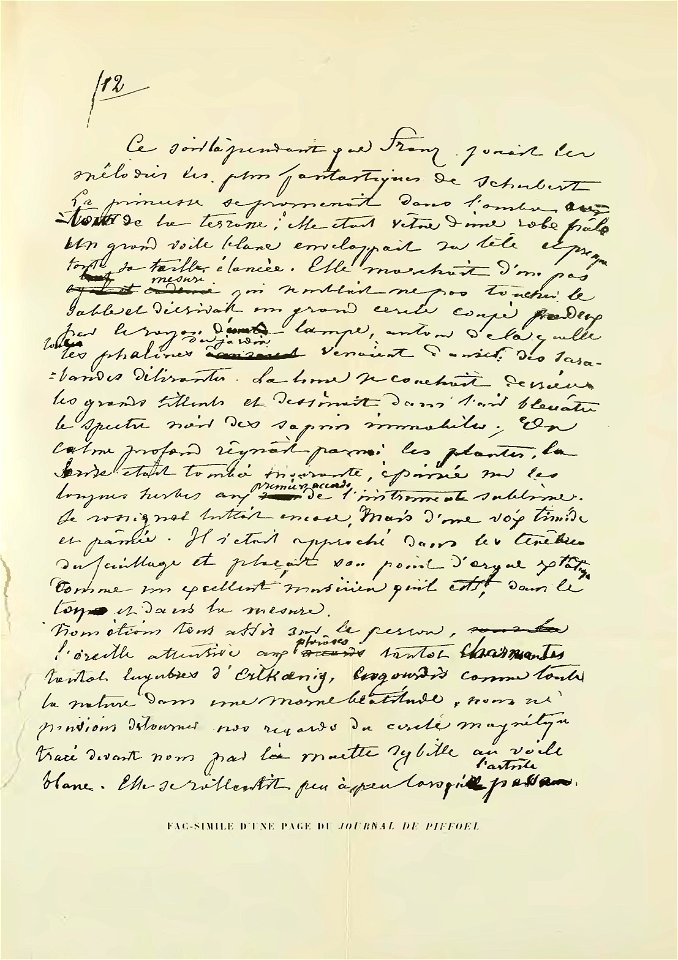 12
Ce soir là pendant que Franz jouait les
mélodies les plus fantastiques de Schubert
La princesse se promenait dans l'ombre
de la terrasse; elle était vêtue d'une robe pâle
Un grand voile blanc enveloppait sa tête et presque
toute sa taille élancée. Elle marchait d'un pas
mesuré
qui semblait ne pas toucher le
sable et décrivait un grand cercle coupé
par le rayon lampe, autour de laquelle
toutes
du jardin
les phalènes venaient danser des sara-
=bandes délirantes. La lune se couchait derrière
les grands tilleuls et dessinait dans l'air bleuâtre
le spectre noir des sapins immobiles. Un
calme profond régnait parmi les plantes, la
brise était tombée mourante, épuisée sur les
premiers accords
longues herbes aux de l'instrument sublime.
Le rossignol luttait encore, Mais d'une voix timide
et pâmée. Il s'était approché dans les ténèbres
du feuillage et plaçait son point d'orgue extatique
Comme un excellent musicien qu'il est, dans le
ton et dans la mesure.
Nous étions tous assis sur le perron,
phrases
l'oreille attentive aux tantôt charmantes
tantôt lugubres d'Erlkœnig, Engourdis comme toute
la nature dans une morne béatitude, nous ne
pouvions détourner nos regards du cercle magnétique
tracé devant nous par la muette sybille au voile
l'artiste
blanc. Elle se rallentit peu à peu lorsque
FAC-SIMILE D'UNE PAGE DU JOURNAL DE PIFFOEL